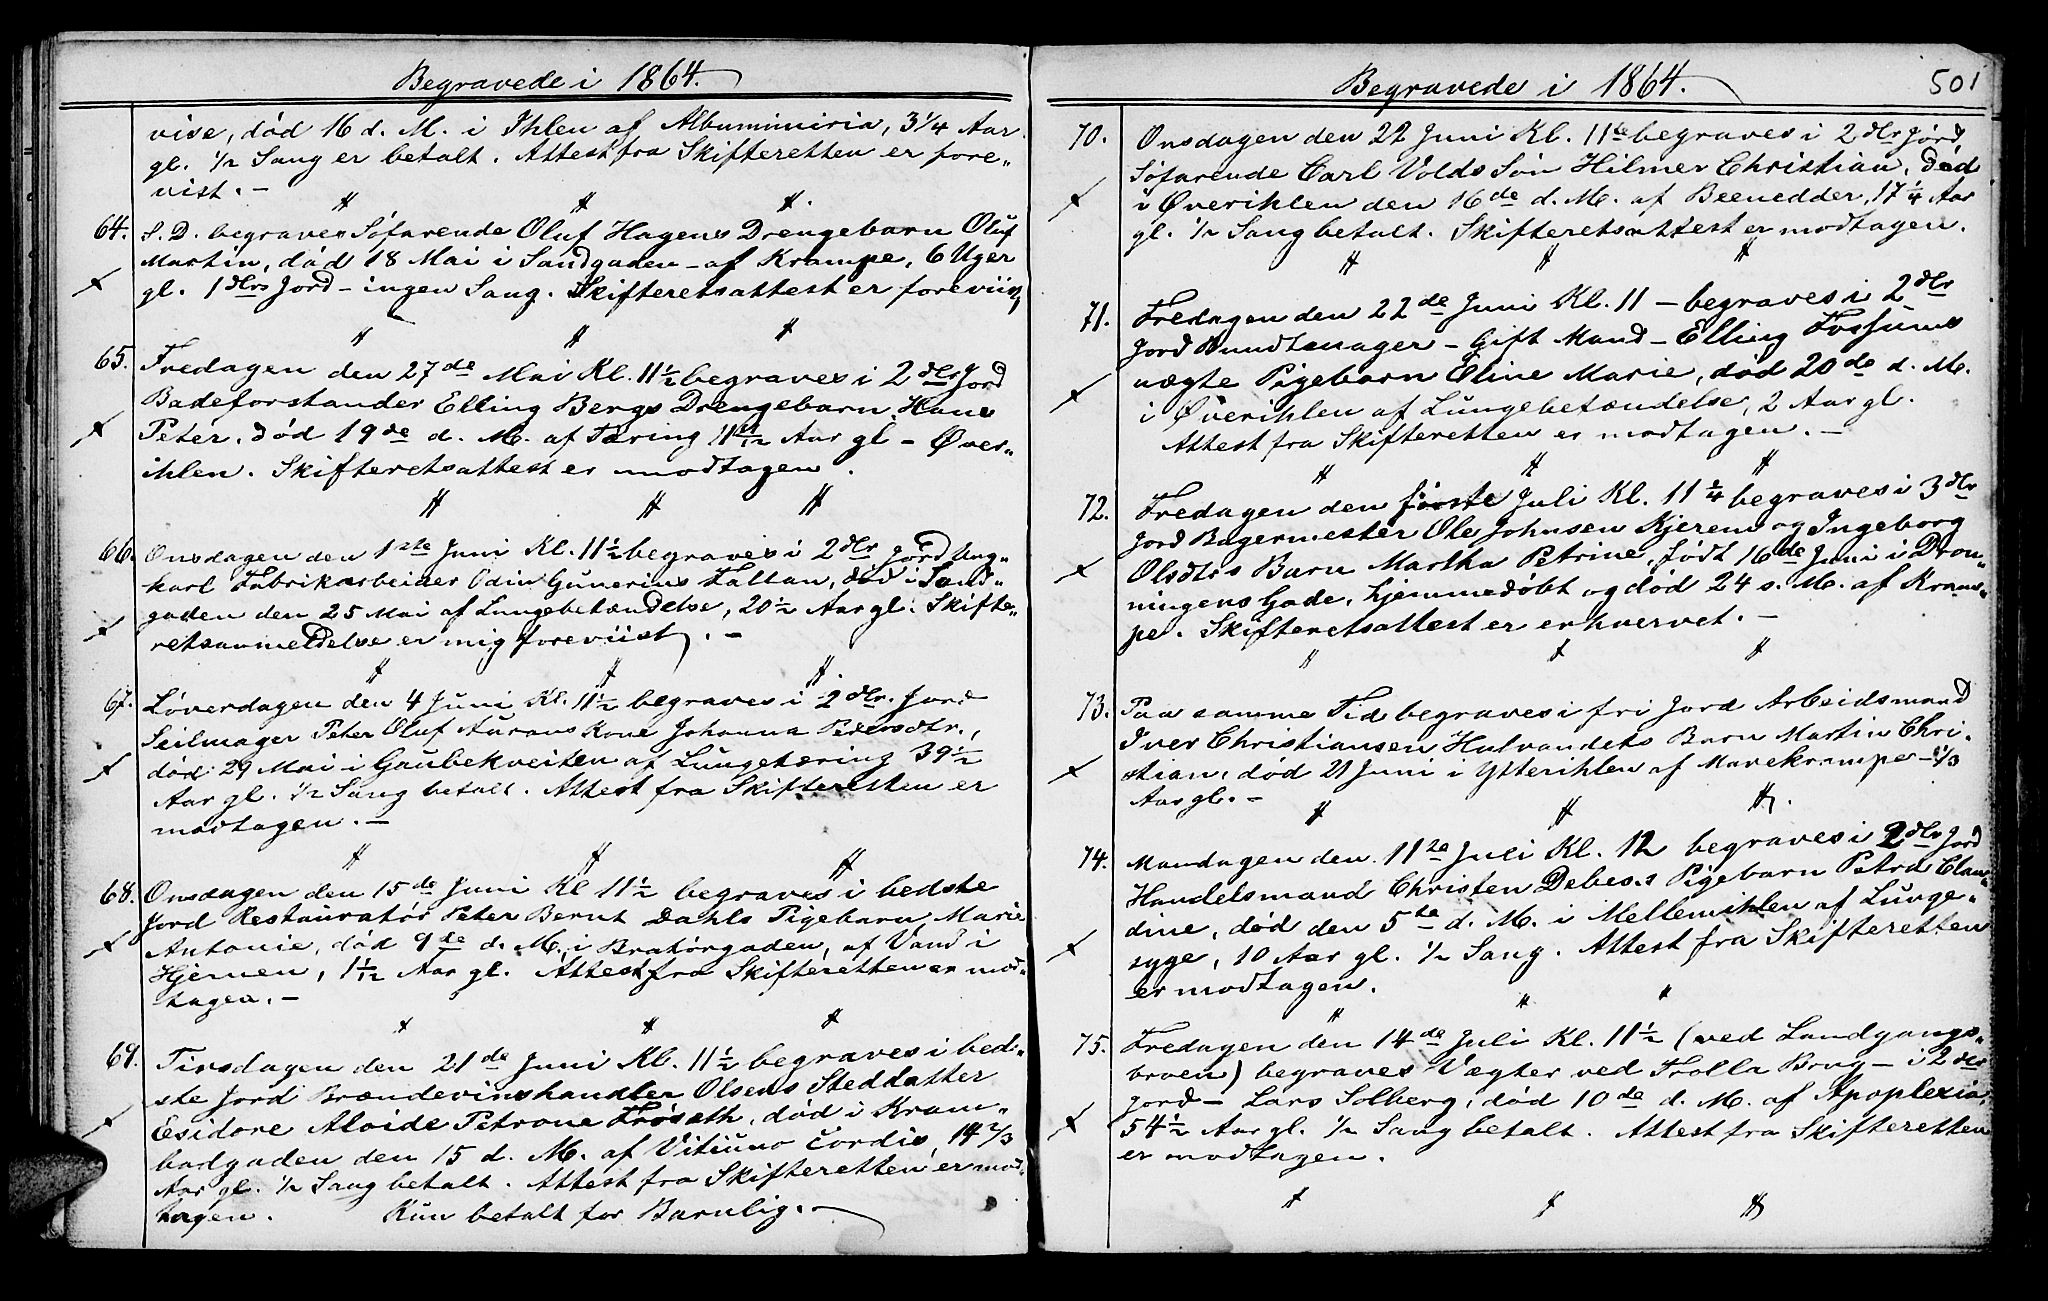 Begravede i 1864.
vise, død 16 d. M. i Ihlen af Albuminiria, 3 1/4 Aar
gl. 1/2 Sang er betalt. Attest fra Skifteretten er fore„
vist. –
64. S. D. begraves Søfarende Oluf Hagens Drengebarn Oluf
Martin, død 18 Mai i Sandgaden – af Krampe, 6 Uger
gl. 1 dlrs Jord – ingen Sang. Skifteretsattest er foreviist
65. Fredagen den 27de Mai Kl. 11 1/2 begraves i 2 dlrs Jord
Badeforstander Elling Bergs Drengebarn Hans
Peter, død 19de d. M. af Tæring 11/12 Aar gl – Øver„
ihlen. Skifteretsattest er modtagen.
66. Onsdagen den 1ste Juni Kl. 11 1/2 begraves i 2 dlr Jord Ung„
karl Fabrikarbeider Odin Gunerius Fattan, død i Sand„
gaden den 25 Mai af Lungebetændelse, 20 1/2 Aar gl. Skifte„
retsanmeldelse er mig foreviist. –
67. Løverdagen den 4 Juni Kl. 11 1/2 begraves i 2 dlr. Jord
Seilmager Peter Oluf Aurans Kone Johanna Pedersdtr.,
død 29 Mai i Gaubekveiten af Lungetæring 39 1/2
Aar gl. 1/2 Sang betalt. Attest fra Skifteretten er
modtagen. –
68. Onsdagen den 15de Juni Kl 11 1/2 begraves i bedste
Jord Restauratør Peter Bernt Dahls Pigebarn Marie
Antonie, død 9de d. M. i Bratørgaden, af Vand i
Hjernen, 1 1/12 Aar gl. Attest fra Skifteretten er mod„
tagen. –
69. Tirsdagen den 21de Juni Kl. 11 1/2 begraves i bed„
ste Jord Brændevinshandler Olsens Steddatter
Esidore Aloide Petrone Frøseth, død i Kram„
badgaden den 15 d. M. af Vitiuno Cordis, 14 2/3
Aar gl. 1/2 Sang betalt. Attest fra Skifteretten er mod„
tagen. Kun betalt for Barnlig. –
Begravede i 1864. 501
70. Onsdagen den 22 Juni Kl. 11 begraves i 2 dlr Jord
Søfarende Carl Volds Søn Hilmer Christian, død
i Øverihlen den 16de d. M. af Beenedder, 17 1/4 Aar
gl. 1/2 Sang betalt. Skifteretsattest er modtagen.
71. Fredagen den 22de Juni Kl. 11 – begraves i 2 dlr
Jord Bundtmager – Gift Mand – Elling Fossums
uægte Pigebarn Eline Marie, død 20de d. M.
i Øverihlen af Lungebetændelse, 2 Aar gl.
Attest fra Skifteretten er modtagen. –
72. Fredagen den første Juli Kl. 11 begraves i 3 dlr
Jord Bagermester Ole Johnsen Kjerem og Ingeborg
Olsdtrs Barn Martha Petrine, født 16de Juni i Dron„
ningens Gade, hjemmedøbt og død 24 s. M. af Kram„
pe. Skifteretsattest er erhvervet. –
73. Paa samme Tid begraves i fri Jord Arbeidsmand
Iver Christiansen Hulvandets Barn Martin Chri„
stian, død 21 Juni i Ytterihlen af Mavekrampe –
Aar gl. –
74. Mandagen den 11te Juli Kl. 12 begraves i 2 dlr Jord
Handelsmand Christen Debess Pigebarn Petra Clau„
dine, død den 5te d. M. i Mellemihlen af Lunge„
syge, 10 Aar gl. 1/2 Sang. Attest fra Skifteretten
er modtagen.
75. Fredagen den 14de Juli Kl. 11 1/2 (ved Landgangs„
broen) begraves Vægter ved Trolla Brug – i 2 dlr
Jord – Lars Solberg, død 10de d. M. af Apoplexia,
54 1/2 Aar gl. 1/2 Sang betalt. Attest fra Skifteretten
er modtagen.